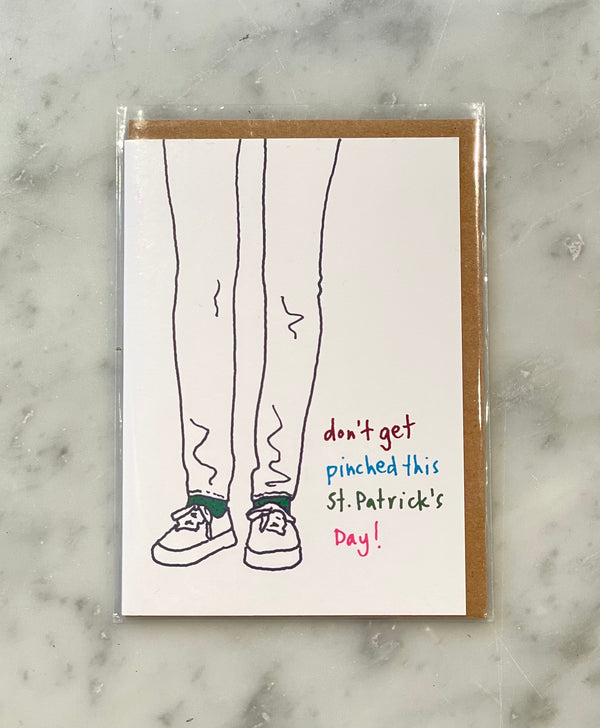 don't get
pinched this
St. Patrick's
Day!